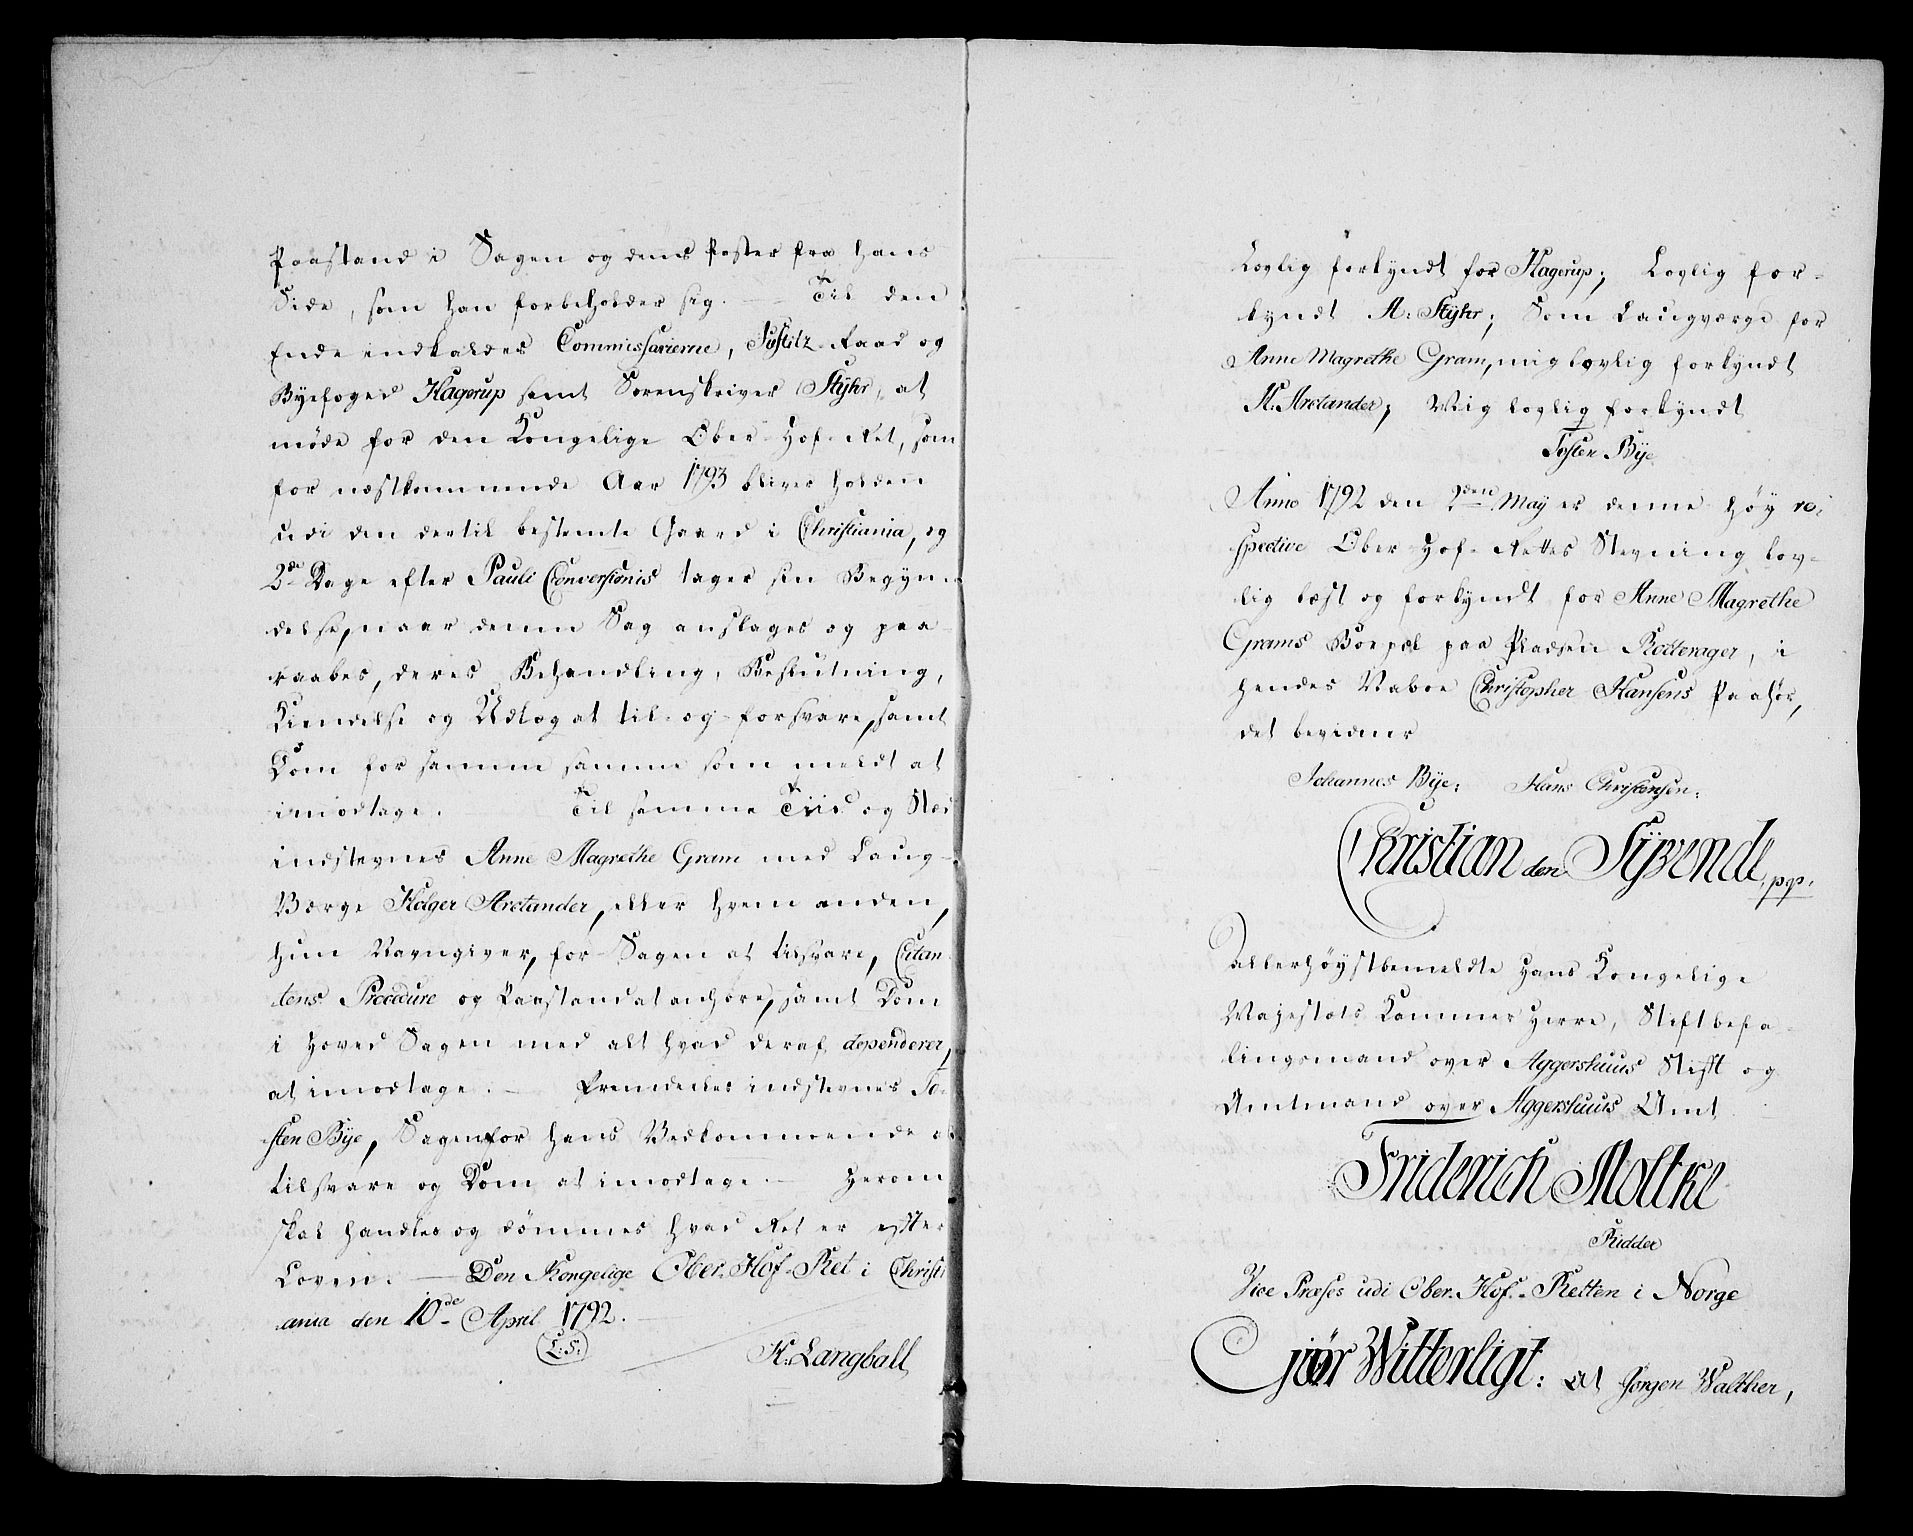 Paastand i Sagen og dens Poster fra hans
Side, som han forbeholder sig. — Til den
Ende indkaldes Commissarierne, Justitz-Raad og
Byefoged Hagerup samt Sorenskriver Styhr, at
møde for den Kongelige Ober-Hof-Ret, som
for næstkommende Aar 1793 bliver holden
udi den dertil bestemte Gaard i Christiania, og
2de Dage efter Pauli Conversionis tager sin Begyn-
delse, naar denne Sag anslages og paa-
raabes, deres Behandling, Beslutning,
Kiendelse og Udtog at til- og forsvare, samt
Dom for samme samme som meldt at
imodtage. — Til samme Tiid og Stæd
indstevnes Anne Magrethe Gram med Laug-
Værge Holger Arctander, eller hvem anden,
hun Navngiver, for Sagen at tilsvare, Citan-
tens Procedure og Paastand at anhøre, samt Dom
i Hoved Sagen med alt hvad deraf dependerer,
at imodtage. — Fremdeeles indstevnes To-
sten Bye, Sagen for hans Vedkommende at
tilsvare og Dom at imodtage. — Herom
skal handles og dømmes hvad Ret er efter
Loven. — Den Kongelige Ober-Hof-Ret i Christi-
ania den 10de April 1792. —
(L:S:)
H. Langball
Lovlig forkyndt for Hagerup; Lovlig for-
kyndt A: Styhr; Som Laugværge for
Anne Magrethe Gram, mig lovlig forkyndt
H. Arctander; Mig lovlig forkyndt
Tosten Bye
Anno 1792 den 2den May er denne Høy re-
spective Ober-Hof-Rettes Stevning lov-
lig læst og forkyndt for Anne Magrethe
Grams Boepæl paa Pladsen Rotterager, i
hendes Naboe Christopher Hansens Paahør,
det bevidner
Johannes Bye: Hans Christensen:
Christian den Syvende, pp.
allerhøystbemeldte Hans Kongelige
Majestæts Kammer Herre, Stiftbefa-
lingsmand over Aggershuus Stift og
Amtmand over Aggershuus Amt
Friderich Moltke
Ridder
Vice Præses udi Ober-Hof-Retten i Norge
Gjør Witterligt: At Jørgen Walther,